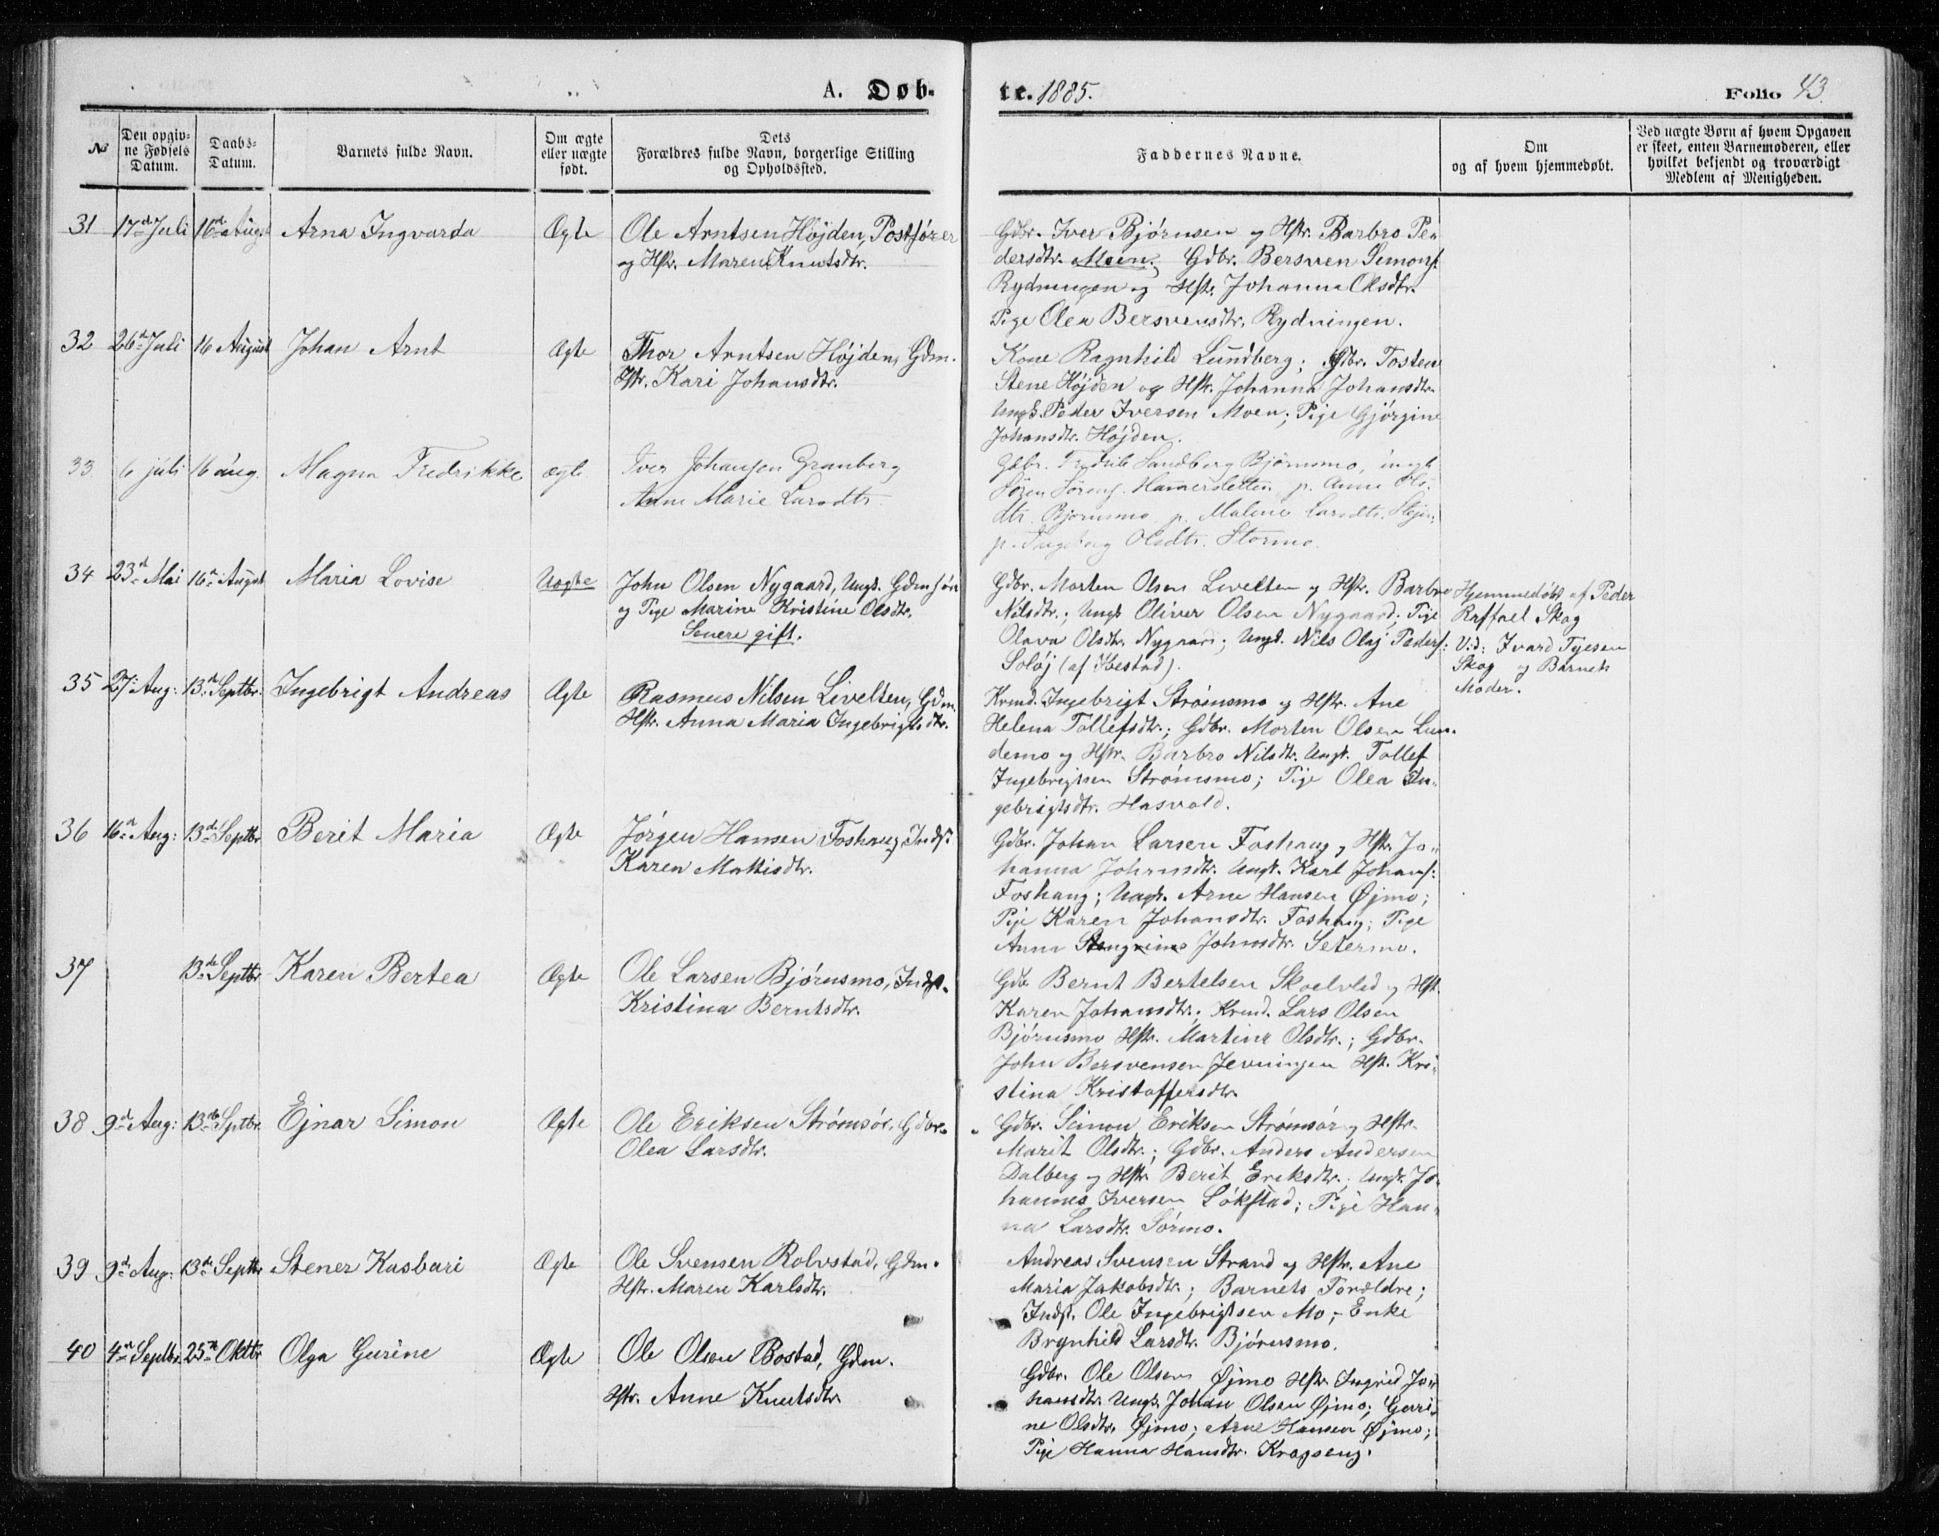 A. Døb-
te. 1885.
Folio 43.
No
Den opgiv-
ne Fødsels
Datum.
Daabs-
Datum.
Barnets fulde Navn.
Om ægte
eller uægte
født.
Dets
Forældres fulde Navn, borgerlige Stilling
og Opholdssted.
Faddernes Navne.
Om
og af hvem hjemmedøbt.
Ved uægte Børn af hvem Opgaven
er skeet, enten Barnemoderen, eller
hvilket bekjendt og troværdigt
Medlem af Menigheden.
31 17de Juli 16de Augst Arna Ingvarda Ægte Ole Arntsen Højden, Postfører
og Hstr. Maren Knutsdtr.
Gdbr. Iver Bjørnsen og Hstr. Barbro Pe-
dersdtr. Moen; Gdbr. Bersven Simons.
Rydningen og Hstr. Johanna Olsdtr.
Pige Olea Bersvensdtr. Rydningen.
32 26de Juli 16 August Johan Arnt Ægte Thor Arntsen Højden, Gdm.
Hstr. Kari Johansdtr.
Kone Ragnhild Lundberg; Gdbr. Tosten
Stene Højden og Hstr. Johanna Johansdtr.
Ungk. Peder Iversen Moen; Pige Gjørgine
Johansdtr. Højden.
33 6 juli 16 aug. Magna Fredrikke ægte Iver Johansen Granberg
Anne Marie Larsdtr.
Gdbr. Fredrik Sandberg Bjørnsmo, ungk
Søren Sørens. Hamersletten p. Anne Ols-
dtr. Bjørnsmo p. Malene Larsdtr.
p. Ingeborg Olsdtr. Stormo.
34 23de Mai 16de August Maria Lovise Uægte John Olsen Nygaard, Ungk. Gdm søn
og Pige Marine Kristine Olsdtr.
Senere gift.
Gdbr. Morten Olsen Livelten og Hstr. Barbro
Nilsdtr.; Ungk Oliver Olsen Nygaard; Pige
Olava Olsdtr. Nygaard; Ungk. Nils Olaj Peders:
Soløj (af Ibestad).
Hjemmedøbt af Peder
Raffael Skog
Vid: Ivard Tyjesen
Skog og Barnets
Moder.
35 27: Aug: 13de Septbr. Ingebrigt Andreas Ægte Rasmus Nilsen Livelten, Gdm.
Hstr. Anna Maria Ingebrigtsdtr.
Krmd. Ingebrigt Strømsmo og Hstr. Ane
Helena Tollefsdtr.; Gdbr. Morten Olsen Lun-
demo og Hstr. Barbro Nilsdtr. Ungk. Tollef
Ingebrigtsen Strømsmo; Pige Olea In-
gebrigtsdtr. Hasvold.
36 16de Aug: 13de Septbr Berit Maria Ægte Jørgen Hansen Foshaug, Indst.
Karen Mattisdtr.
Gdbr. Johan Larsen Foshaug og Hstr. Jo-
hanna Johnsdtr. Ungk. Karl Johans:
Foshaug; Ungk. Arne Hansen Øjmo;
Pige Karen Johansdtr. Foshaug; Pige
Anna Johnsdtr. Setermo.
37 13de Septbr Karen Bertea Ægte Ole Larsen Bjørnsmo, Indst.
Kristina Berntsdtr.
Gdb. Bernt Bertelsen Skoelvlid og Hst.
Karen Johansdtr.; Krmd. Lars Olsen
Bjørnsmo Hstr. Martine Olsdtr.; Gdbr.
John Bersvensen Jevningen Hst. Kri-
stina Kristoffersdtr.
38 9de Aug: 13de Sptbr. Ejnar Simon Ægte Ole Eriksen Strømsør. Gdbr.
Olea Larsdtr.
Gdbr. Simon Eriksen Strømsør og Hstr.
Marit Olsdtr.; Gdbr. Anders Andersen
Dalberg og Hstr. Berit Eriksdtr.; Ungk. Jo-
hannes Iversen Løkstad; Pige Han-
na Larsdtr. Sørmo.
39 9de Aug: 13de Septbr Stener Kasbari Ægte Ole Svensen Rolvstad, Gdm.
Hstr. Maren Karlsdtr.
Andreas Svensen Strand og Hstr. Ane
Maria Jakobsdtr.; Barnets Forældre;
Indst. Ole Ingebrigtsen Mo; Enke
Brynhild Larsdtr. Bjørnsmo.
40 4de Septbr. 25de Oktbr Olga Gurine Ægte Ole Olsen Bostad, Gdm.
Hstr. Anne Knutsdtr.
Gdbr. Ole Olsen Øjmo Hstr Ingrid Jo-
hansdtr. Ungk. Johan Olsen Øjmo; Guri-
ne Olsdtr. Øjmo; Arne Hansen Øjmo;
Pige Hanna Hansdtr. Kragseng.